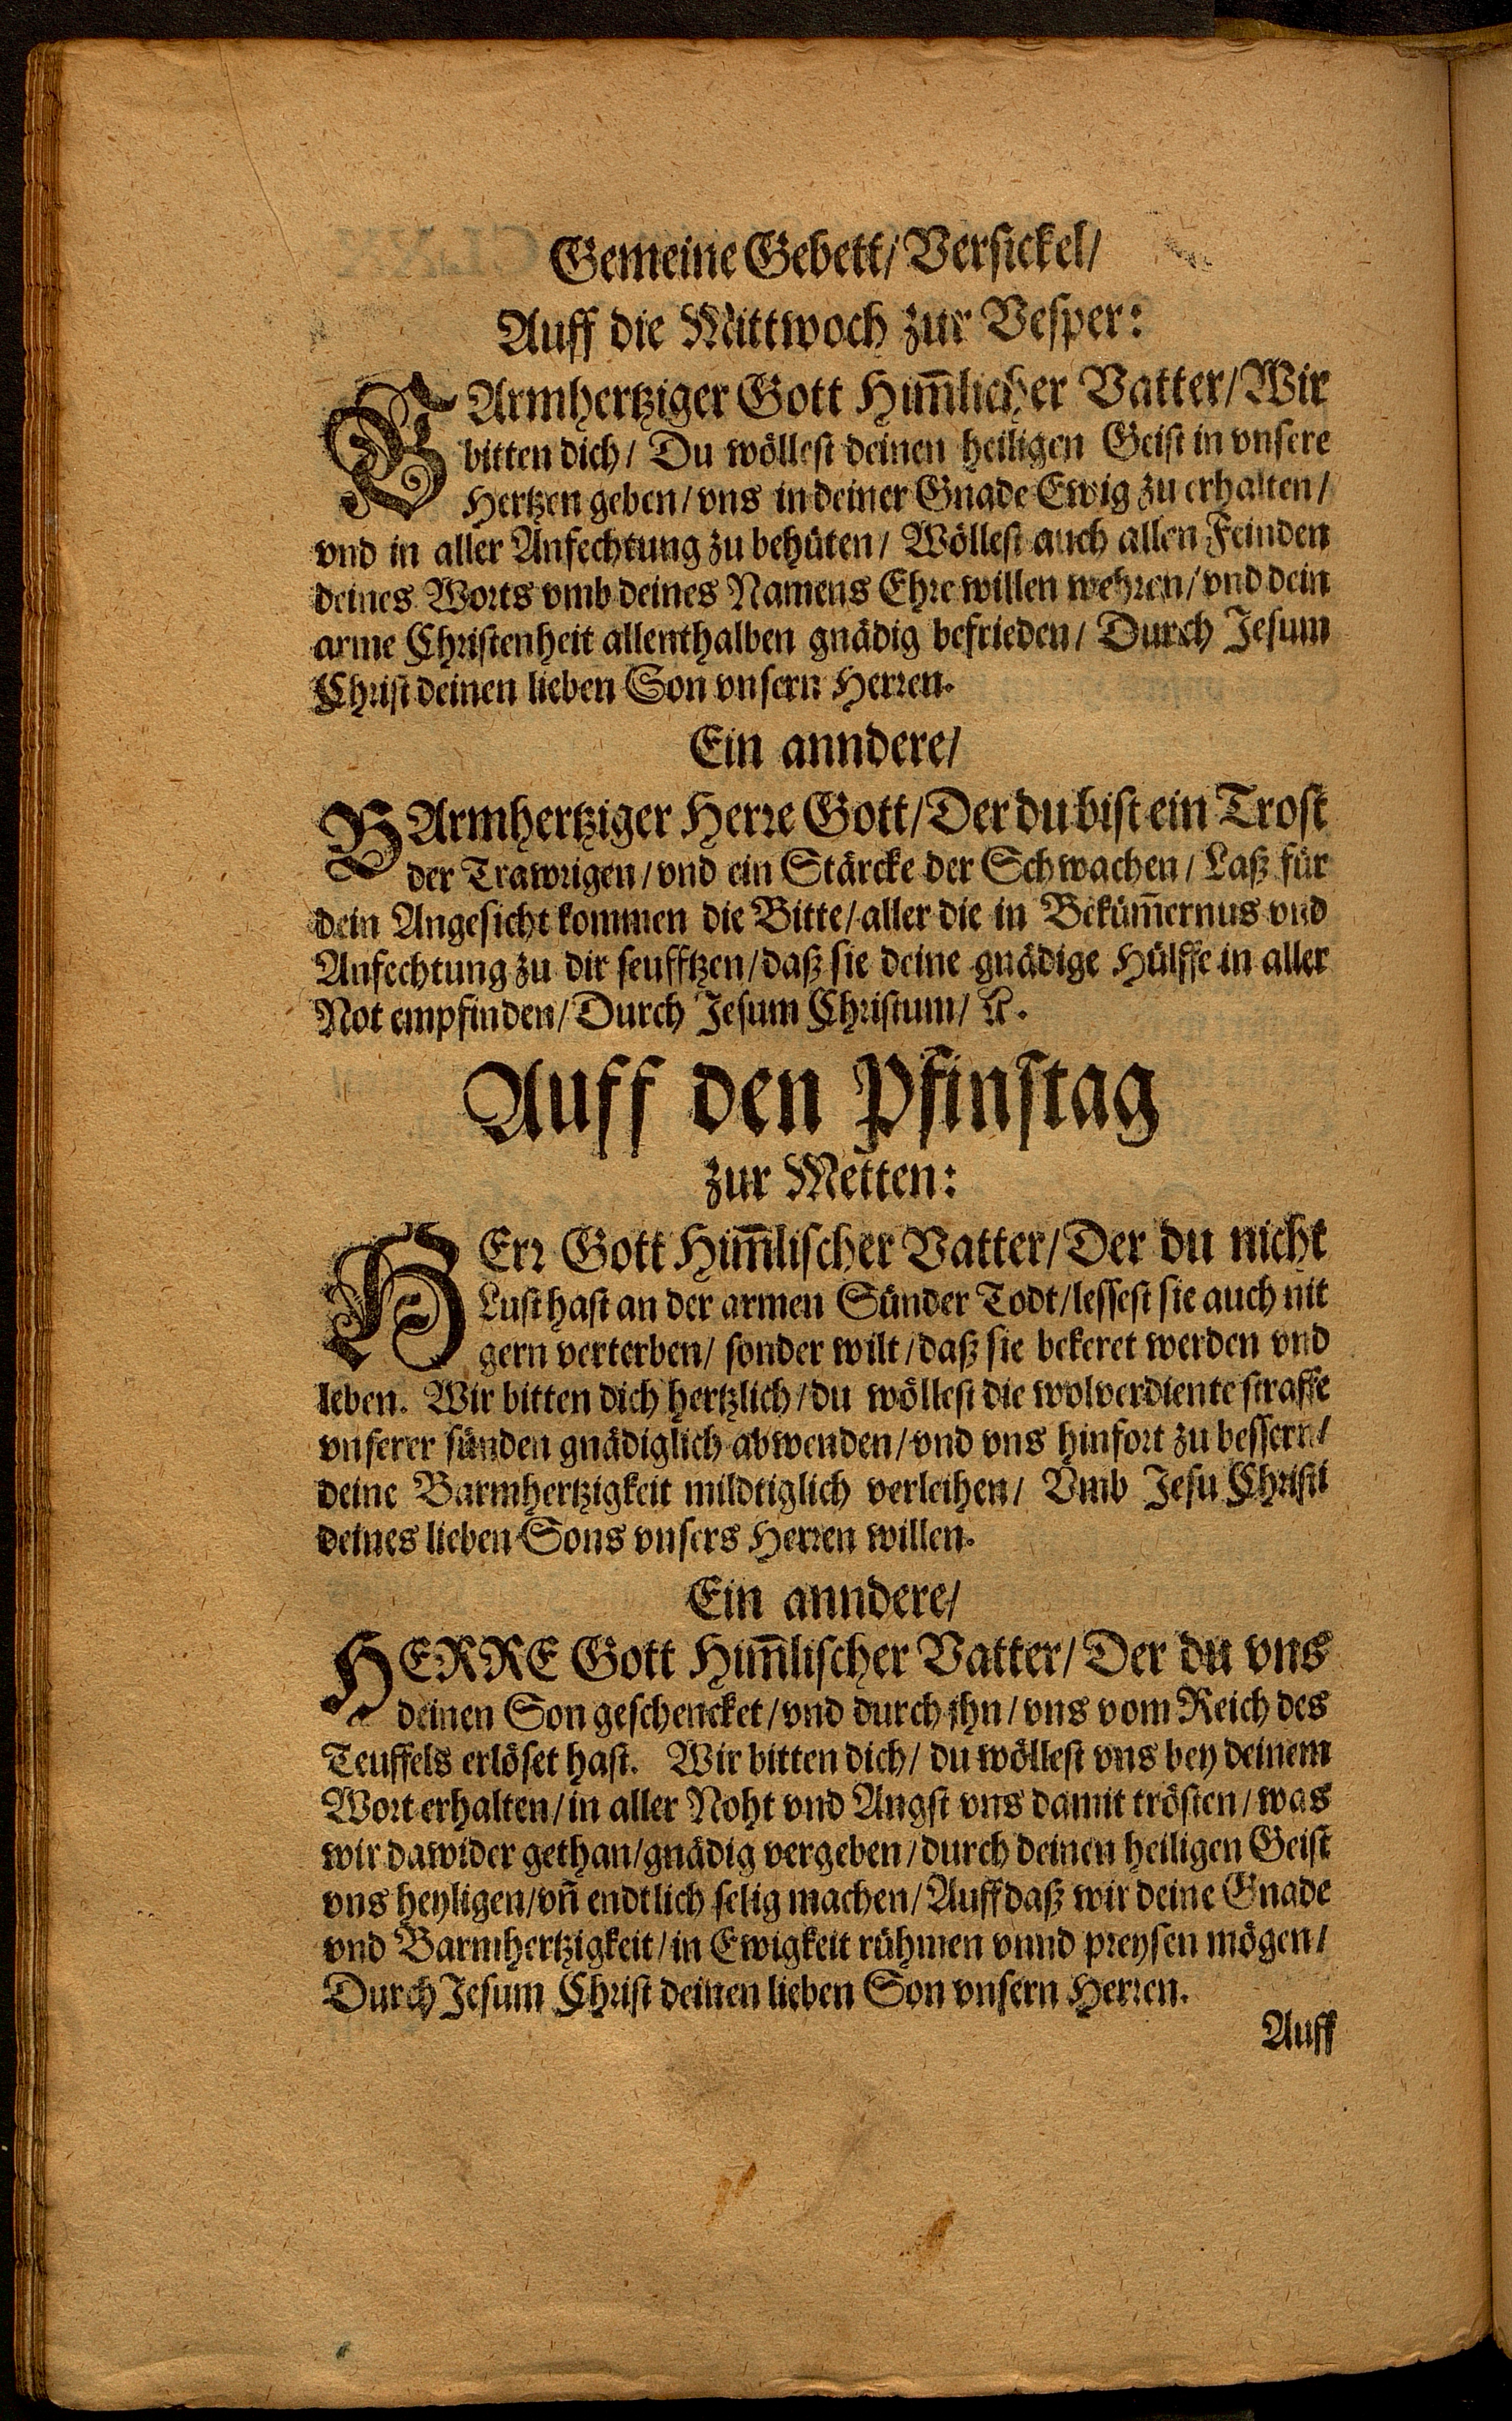 Gemeine Gebett/ Versickel/
Auff die Mittwoch zur Vesper:
BArmhertziger Gott Him̃licher Vatter/ Wir
bitten dich/ Du wöllest deinen heiligen Geist in vnsere
Hertzen geben/ vns in deiner Gnade Ewig zu erhalten/
vnd in aller Anfechtung zu behüten/ Wöllest auch allen Feinden
deines Worts vmb deines Namens Ehre willen wehren/ vnd dein
arme Christenheit allenthalben gnädig befrieden/ Durch Jesum
Christ deinen lieben Son vnsern Herren.
Ein anndere/
BArmhertziger Herre Gott/ Der du bist ein Trost
der Trawrigen/ vnd ein Stärcke der Schwachen/ Laß für
dein Angesicht kommen die Bitte/ aller die in Beküm̃ernus vnd
Anfechtung zu dir seufftzen/ daß sie deine gnädige Hülffe in aller
Not empfinden/ Durch Jesum Christum/ ꝛc.
Auff den Pfinstag
zur Metten:
HErr Gott Him̃lischer Vatter/ Der du nicht
Lust hast an der armen Sünder Todt/ lessest sie auch nit
gern verterben/ sonder wilt/ daß sie bekeret werden vnd
leben. Wir bitten dich hertzlich/ du wöllest die wolverdiente straffe
vnserer sünden gnädiglich abwenden/ vnd vns hinfort zu bessern/
deine Barmhertzigkeit mildtiglich verleihen/ Vmb Jesu Christi
deines lieben Sons vnsers Herren willen.
Ein anndere/
HERRE Gott Him̃lischer Vatter/ Der du vns
deinen Son geschencket/ vnd durch ihn/ vns vom Reich des
Teuffels erlöset hast. Wir bitten dich/ du wöllest vns bey deinem
Wort erhalten/ in aller Noht vnd Angst vns damit trösten/ was
wir dawider gethan/ gnädig vergeben/ durch deinen heiligen Geist
vns heyligen/ vñ endtlich selig machen/ Auff daß wir deine Gnade
vnd Barmhertzigkeit/ in Ewigkeit rühmen vnnd preysen mögen/
Durch Jesum Christ deinen lieben Son vnsern Herren.
Auff